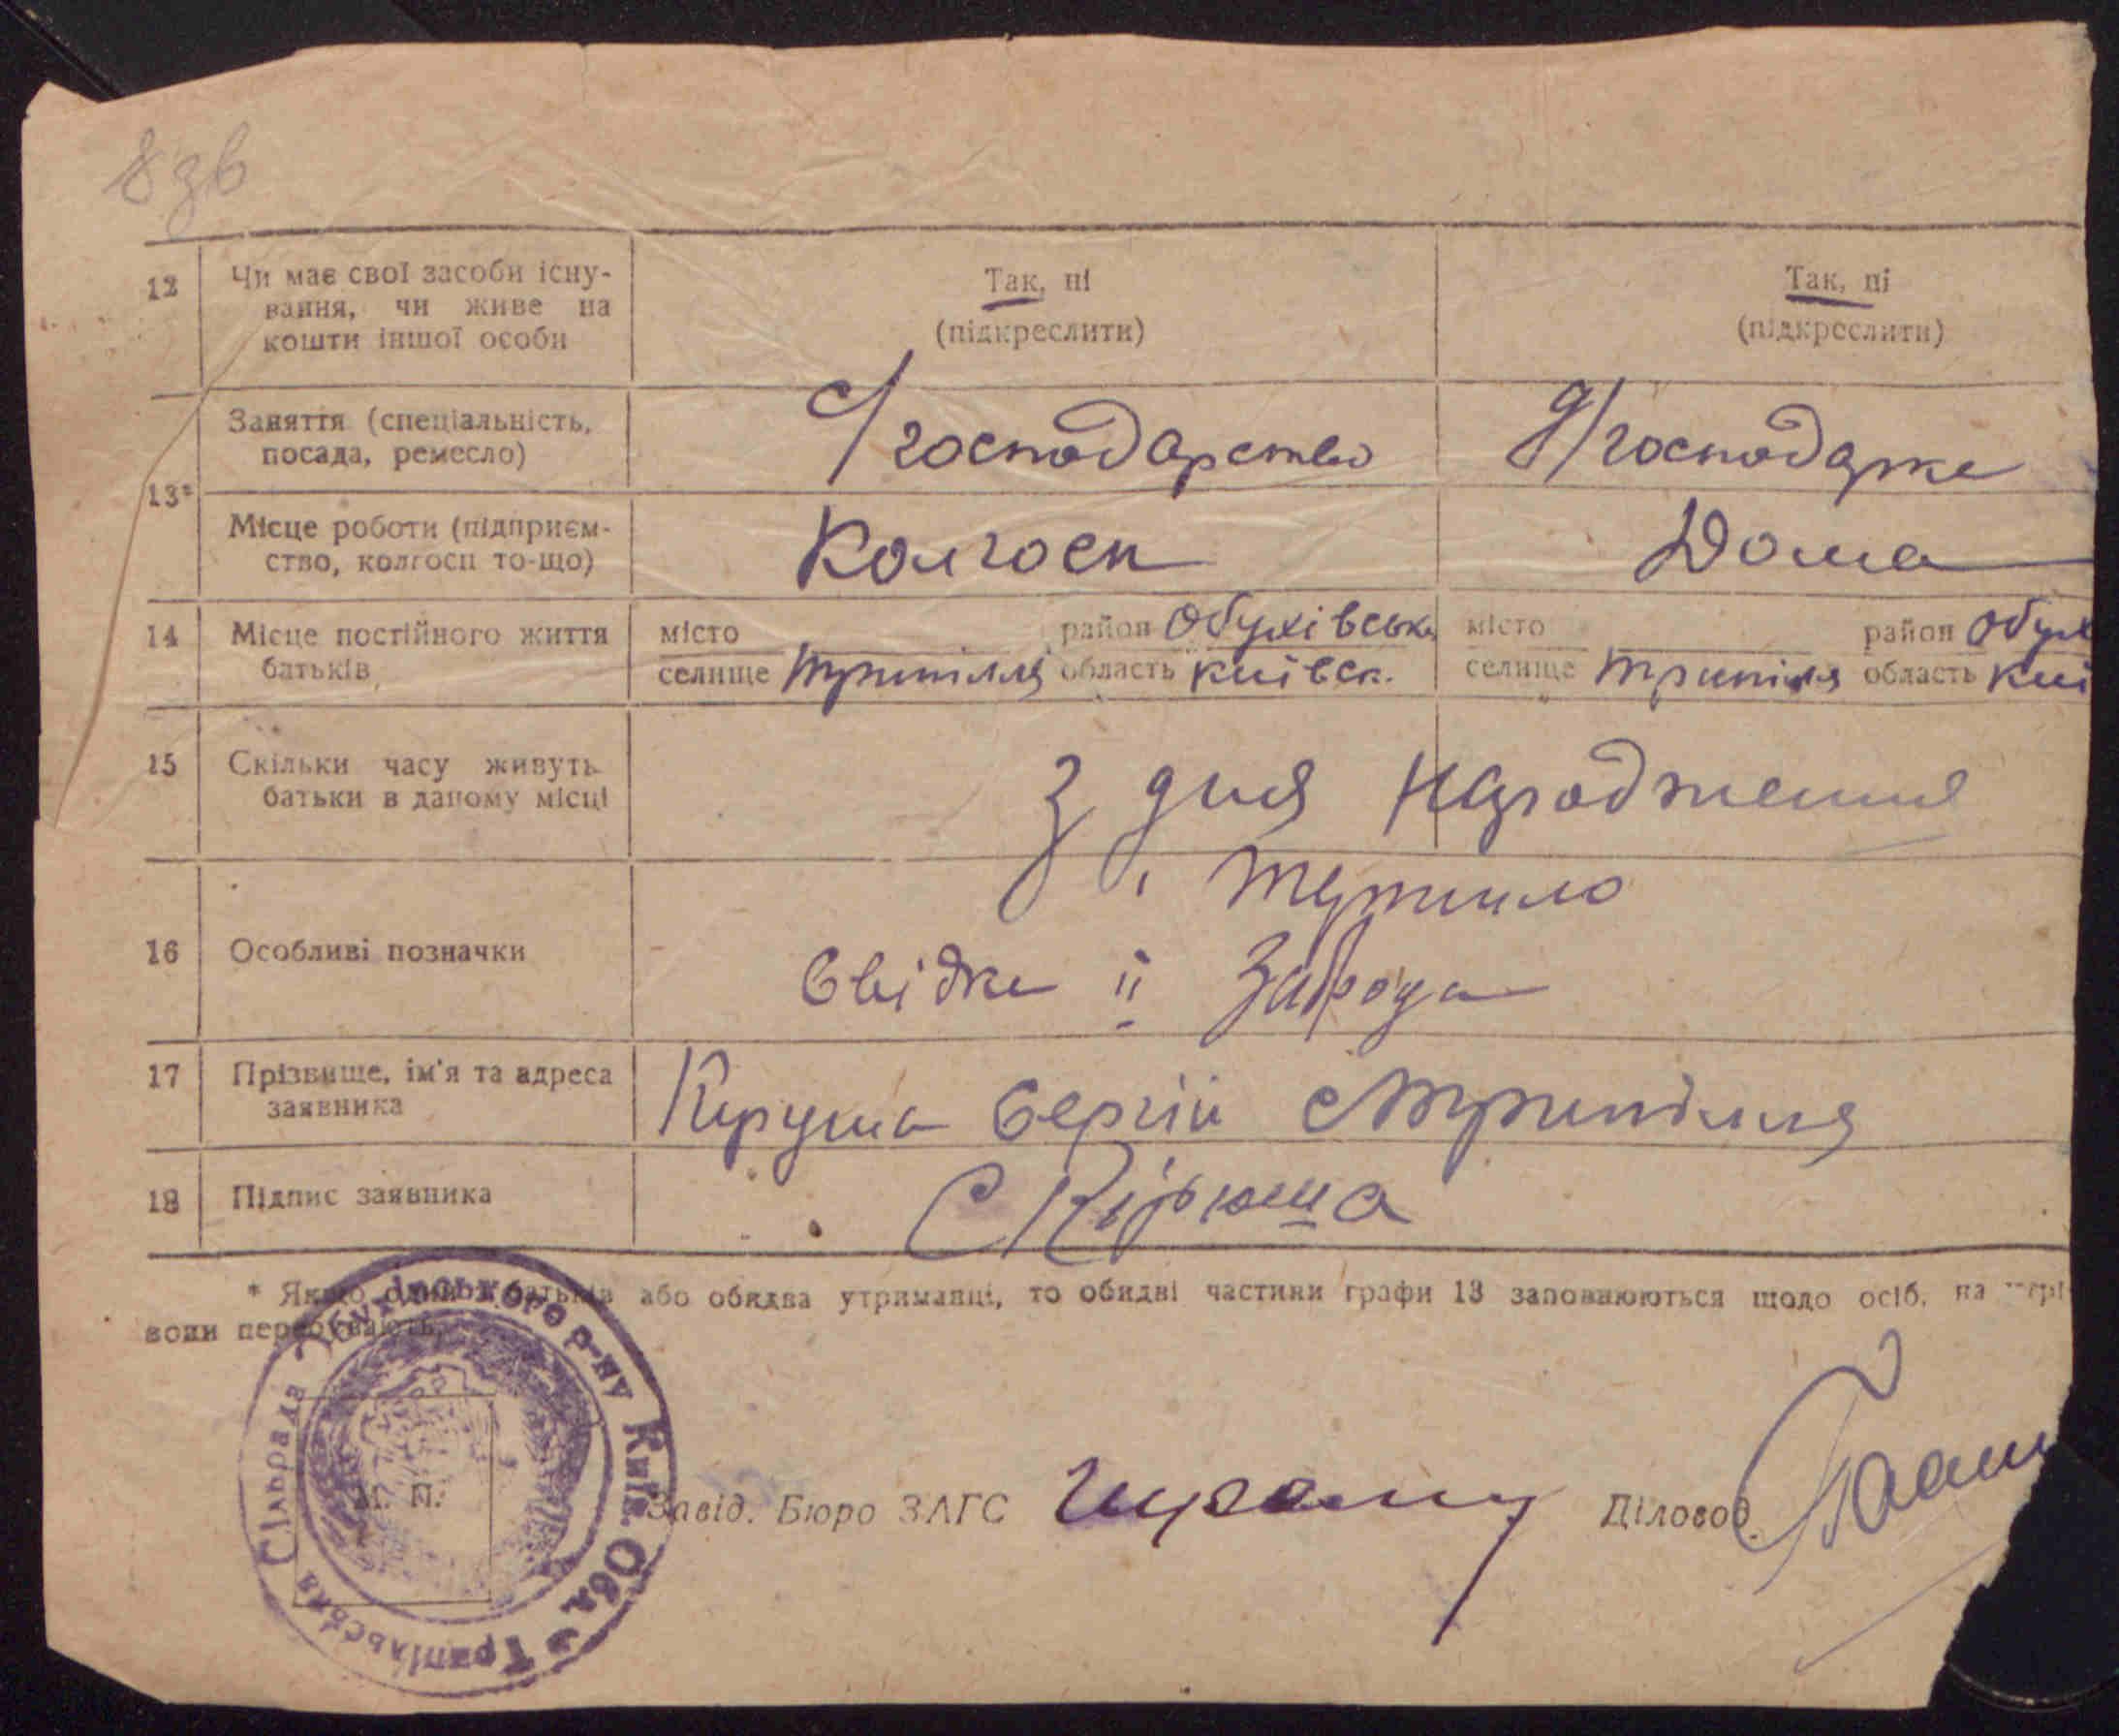 8 зв
12 Чи має свої засоби існу-
вання, чи живе на
кошти іншої особи
Так, ні
(підкреслити)
Так, ні
(підкреслити)
13*
Заняття (спеціальність,
посада, ремесло)
с/господарство
д/господарка
Місце роботи (підприєм-
ство, колгосп то-що)
Колгосп
Дома
14 Місце постійного життя
батьків
місто район Обухівськ.
селище Трипілля область Київск.
місто район Обух
селище Трипілля область Киї
15 Скільки часу живуть
батьки в даному місці
З дня народження
16 Особливі позначки
Свідки
17 Прізвище, ім'я та адреса
заявника
Сергій с Трипілля
18 Підпис заявника
С Кірюша
* Якщо один з батьків або обидва утриманці, то обидві частини графи 13 заповнюються щодо осіб, на
вони перебувають.
Трипільська Сільрада Обухівського р-ну Київ. Обл.
М. П.
Завід. Бюро ЗАГС
Діловод.